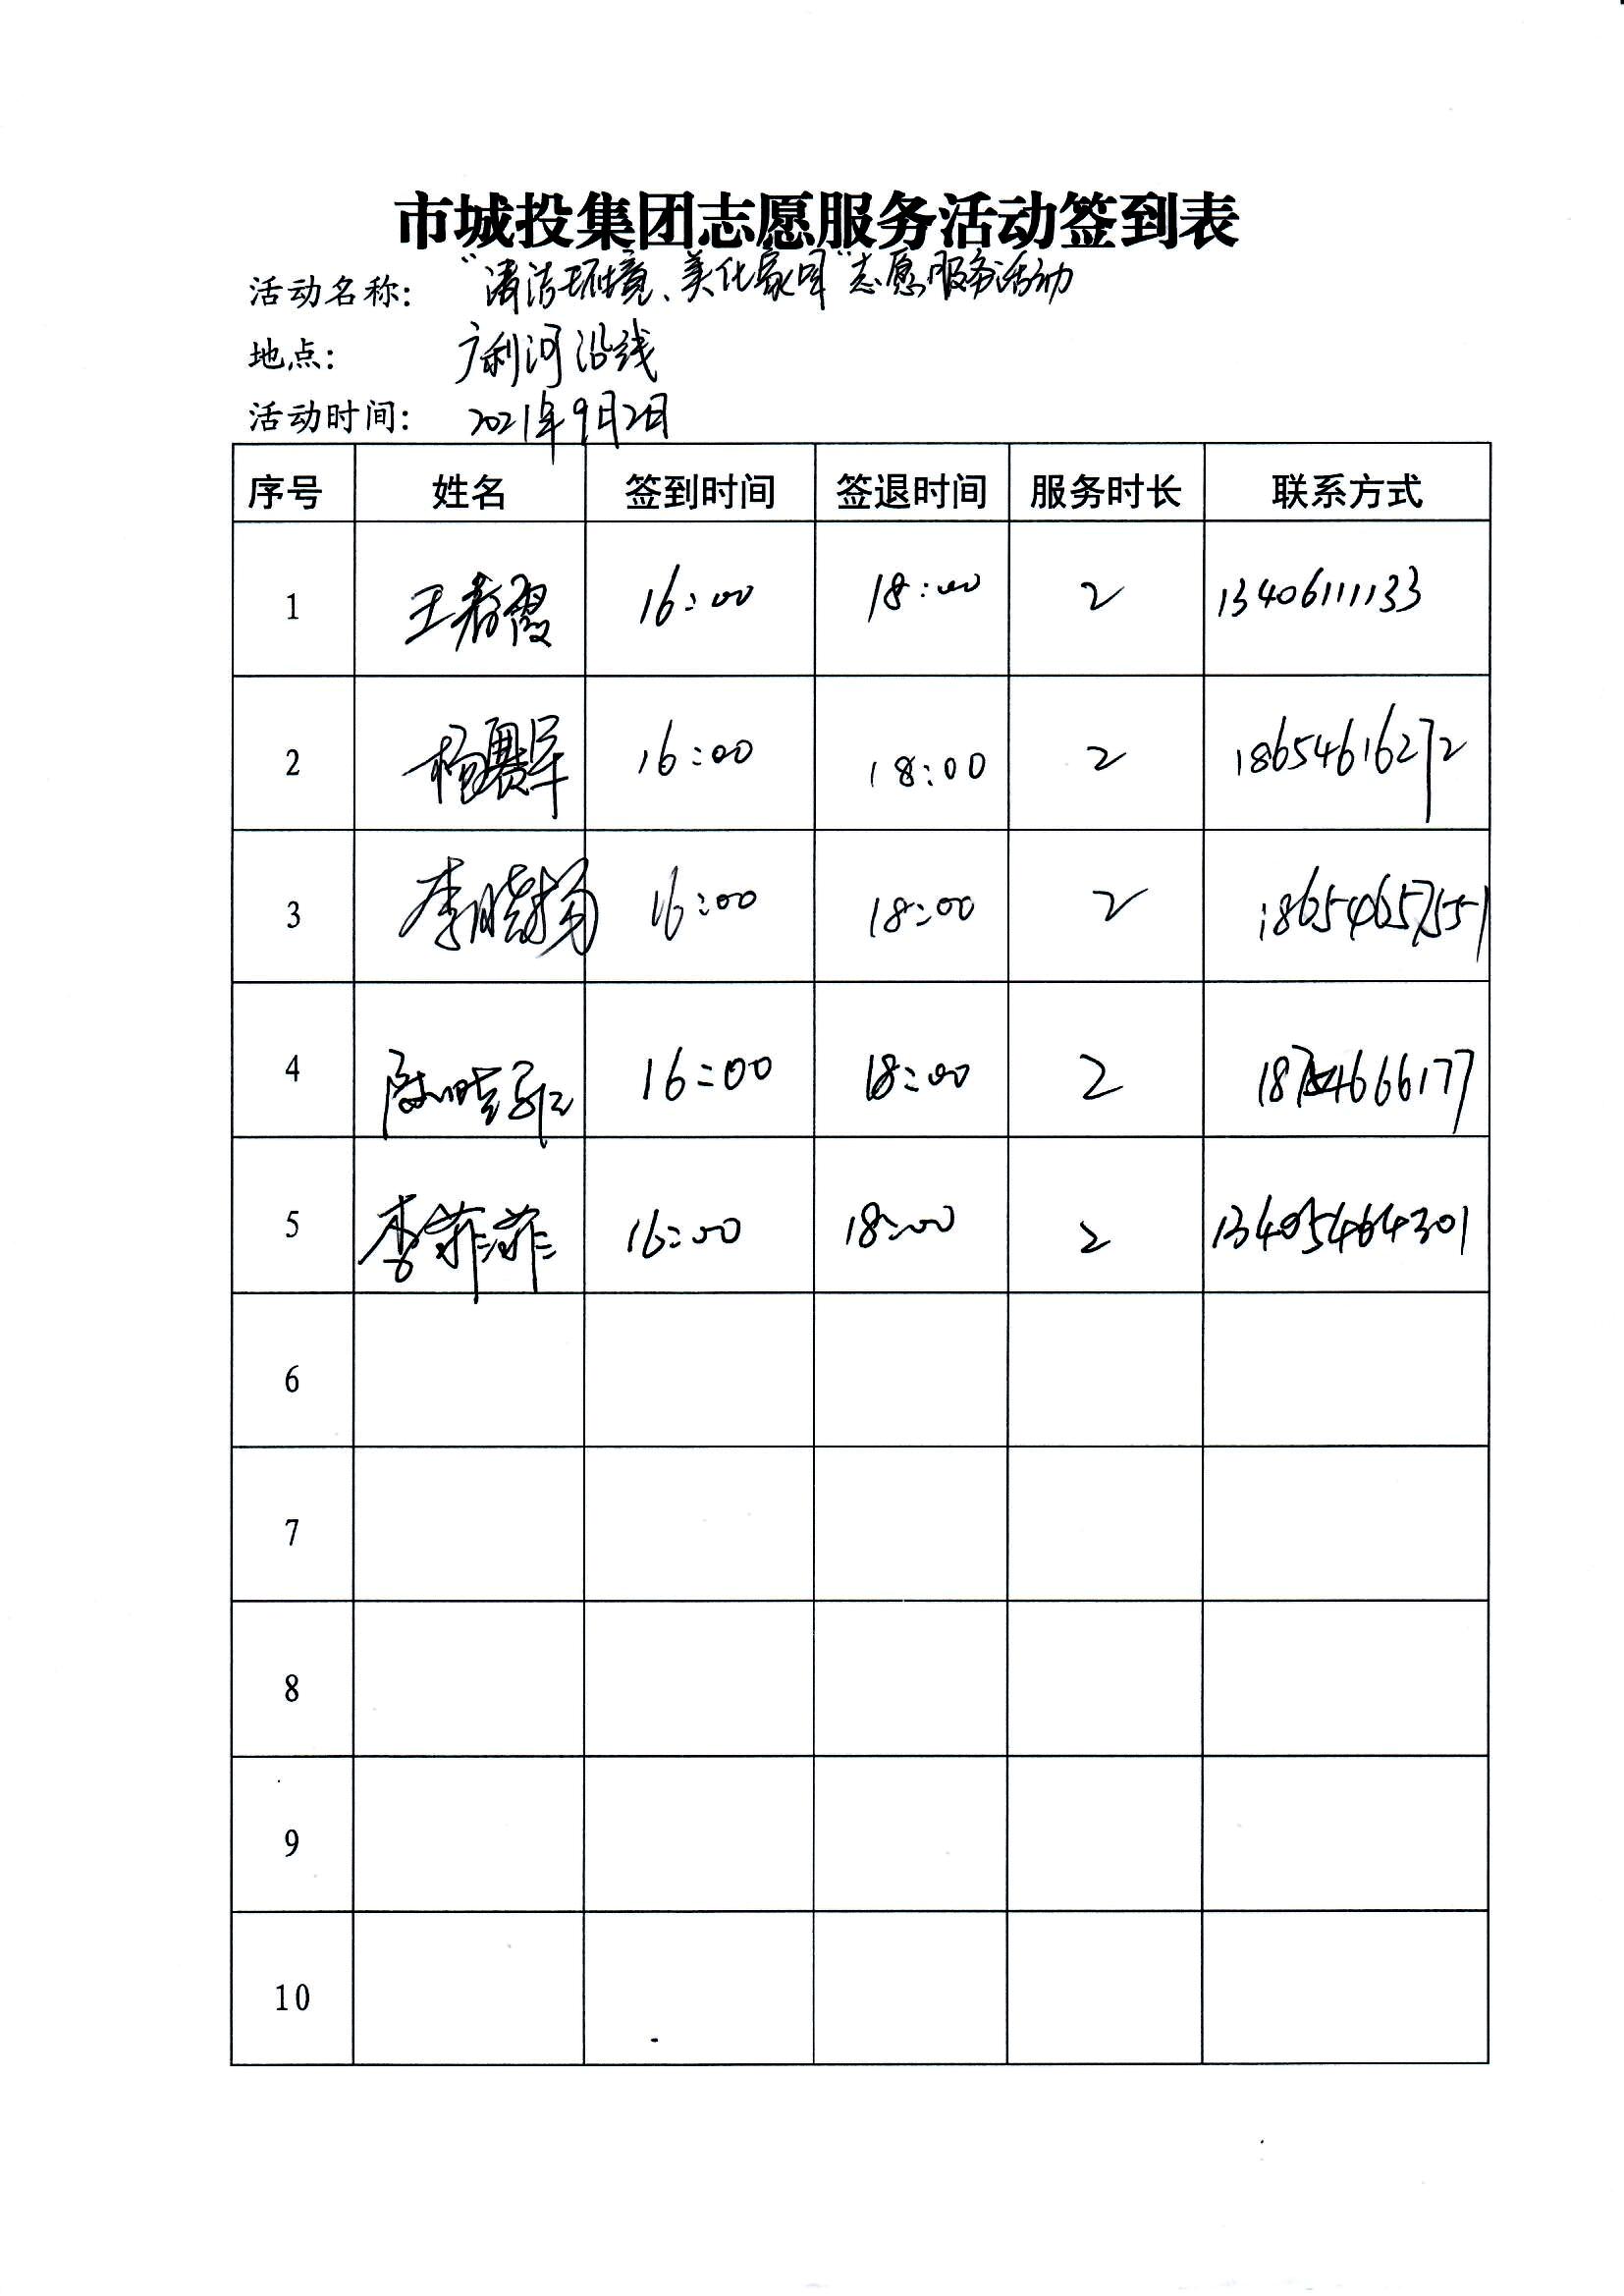 市城投集团志愿服务活动签到表
活动名称: “清洁环境、美化家园”志愿服务活动
地点: 广利河沿线
活动时间: 2021年9月2日
序号 姓名 签到时间 签退时间 服务时长 联系方式
1 王春霞 16:00 18:00 2 13406111133
2 杨赛军 16:00 18:00 2 18654616272
3 李晓扬 16:00 18:00 2 18654657551
4 陈晓 16:00 18:00 2
5 李菲菲 16:00 18:00 2 13405464301
6
7
8
9
10